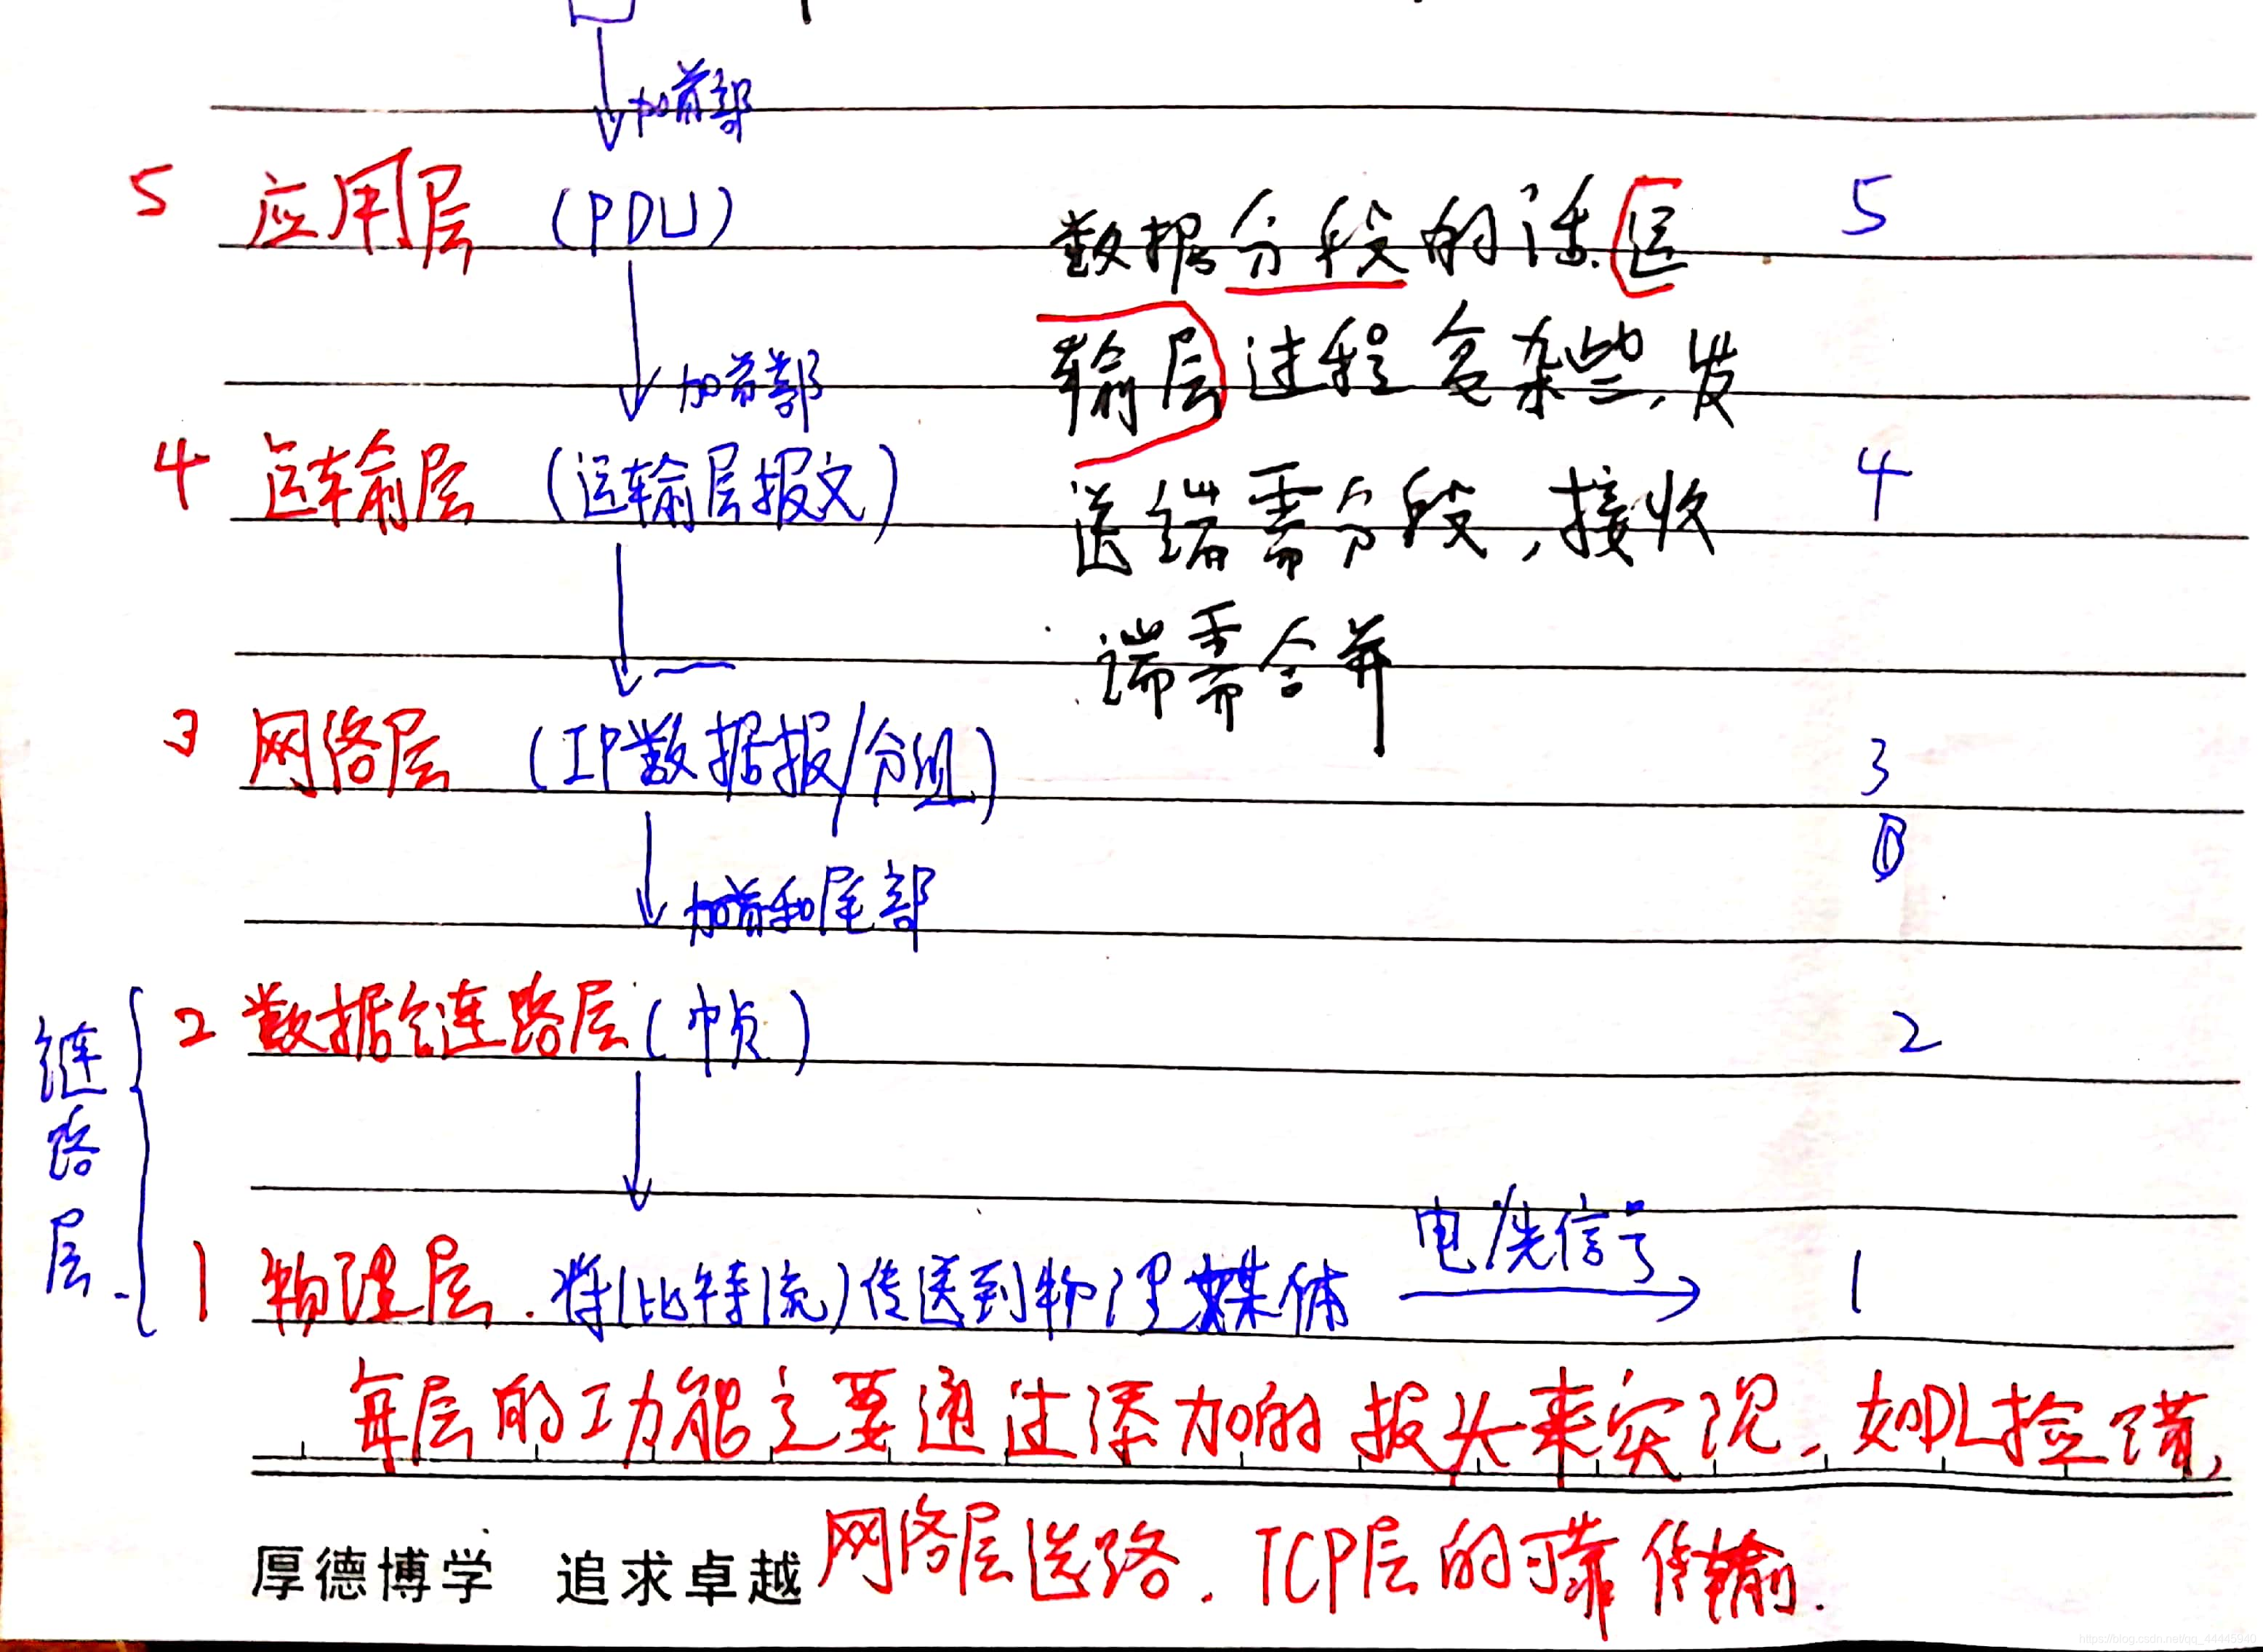 加首部
5 应用层 (PDU) 5
数据分段的话运
输层过程复杂些,发
加首部
4 运输层 (运输层报文) 4
送端需分段,接收
端需合并
3 网络层 (IP数据报/分组) 3
加首和尾部
链路层
2 数据链路层(帧) 2
电/光信号
1 物理层.将(比特流)传送到物理媒体 1
每层的功能主要通过添加的报头来实现.如DL检错,
网络层选路.TCP层的可靠传输.
厚德博学 追求卓越
https://blog.csdn.net/qq_44445949